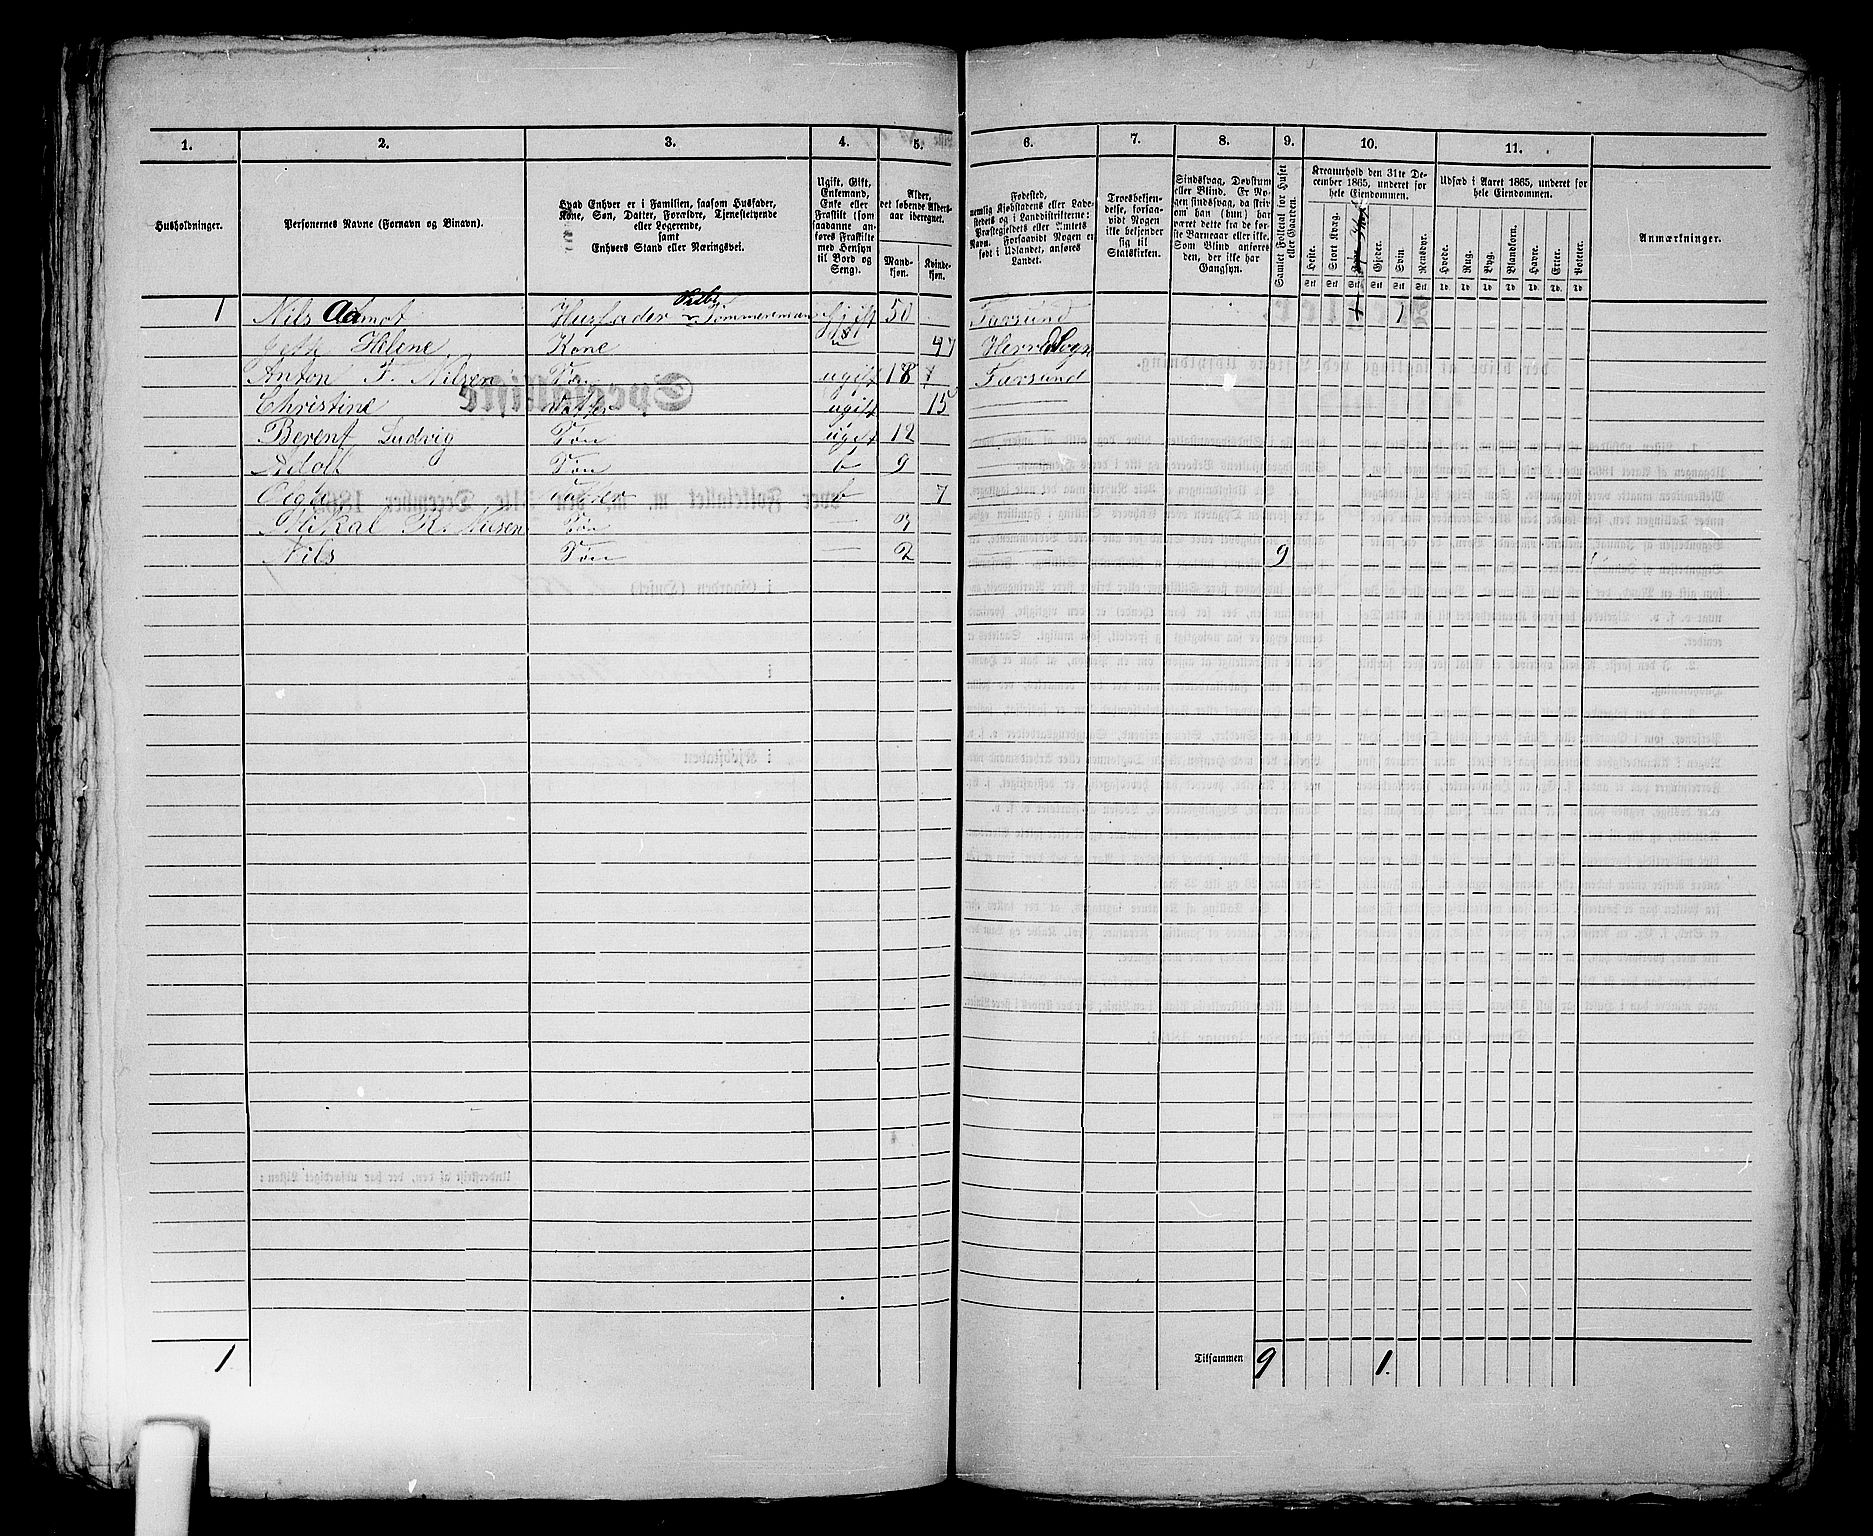 1. 2. 3. 4. 5. 6. 7. 8. 9. 10. 11.
Husholdninger.
Personernes Navne (Fornavn og Binavn).
Hvad Enhver er i Familien, saasom Husfader,
Kone, Søn, Datter, Forældre, Tjenestetyende
eller Logerende,
samt
Enhvers Stand eller Næringsvei.
Ugift, Gift,
Enkemand,
Enke eller
Fraskilt (som
saadanne an-
føres Fraskilte
med Hensyn
til Bord og
Seng).
Alder,
det løbende Alders-
aar iberegnet.
Mand-
kjøn.
Kvinde-
kjøn.
Fødested,
nemlig Kjøbstadens eller Lade-
stedets og i Landdistrikterne:
Præstegjeldets eller Amtets
Navn. Forsaavidt Nogen er
født i Udlandet, anføres
Landet.
Troesbekjen-
delse, forsaa-
vidt Nogen
ikke bekjender
sig til
Statskirken.
Sindssvag, Døvstum
eller Blind. Er No-
gen sindssvag, da skriv
om han (hun) har
været dette fra de før-
ste Barneaar eller ikke.
Som Blind anføres
den, der ikke har
Gangsyn.
Samlet Folketal for Huset
eller Gaarden.
Kreaturhold den 31te De-
cember 1865, underet for
hele Eiendommen.
Heste. Stort Kvæg. Gjeder. Svin. Rensdyr.
Udsæd i Aaret 1865, underet for
hele Eiendommen.
Hvede. Rug. Byg. Blandkorn. Havre. Erter. Poteter.
Anmærkninger.
Stk Stk Stk Stk Stk Stk Td. Td. Td. Td. Td. Td. Td.
1 Nils Aamot Husfader Tømmermand gift 50 Farsund 1
Helene Kone 47
Anton T. Nilsen Søn ugift 18 Farsund
Christine Datter ugift 15
Berent Ludvig Søn ugift 12
Adolf Søn 9
Olga Datter 7
Mikal R. Nilsen Søn
Nils Søn 2 9
1 Tilsammen 9 1.